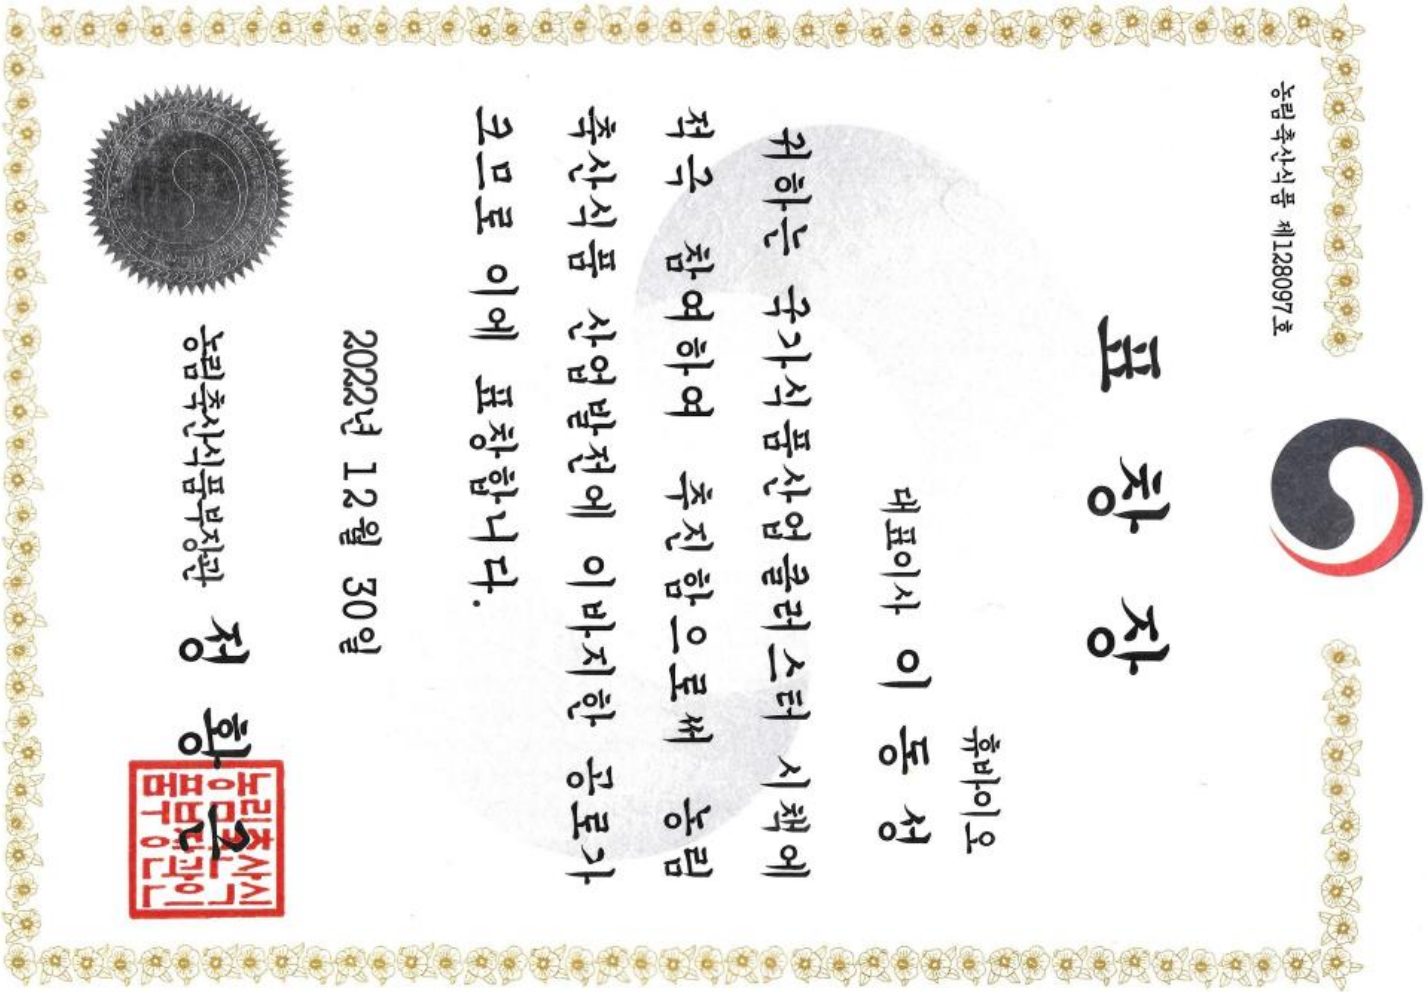 농림축산식품 제128097호
표 창 장
휴바이오
대표이사 이 동 성
귀하는 국가식품산업클러스터 시책에
적극 참여하여 추진함으로써 농림
축산식품 산업발전에 이바지한 공로가
크므로 이에 표창합니다.
2022년 12월 30일
농림축산식품부장관 정 황 근